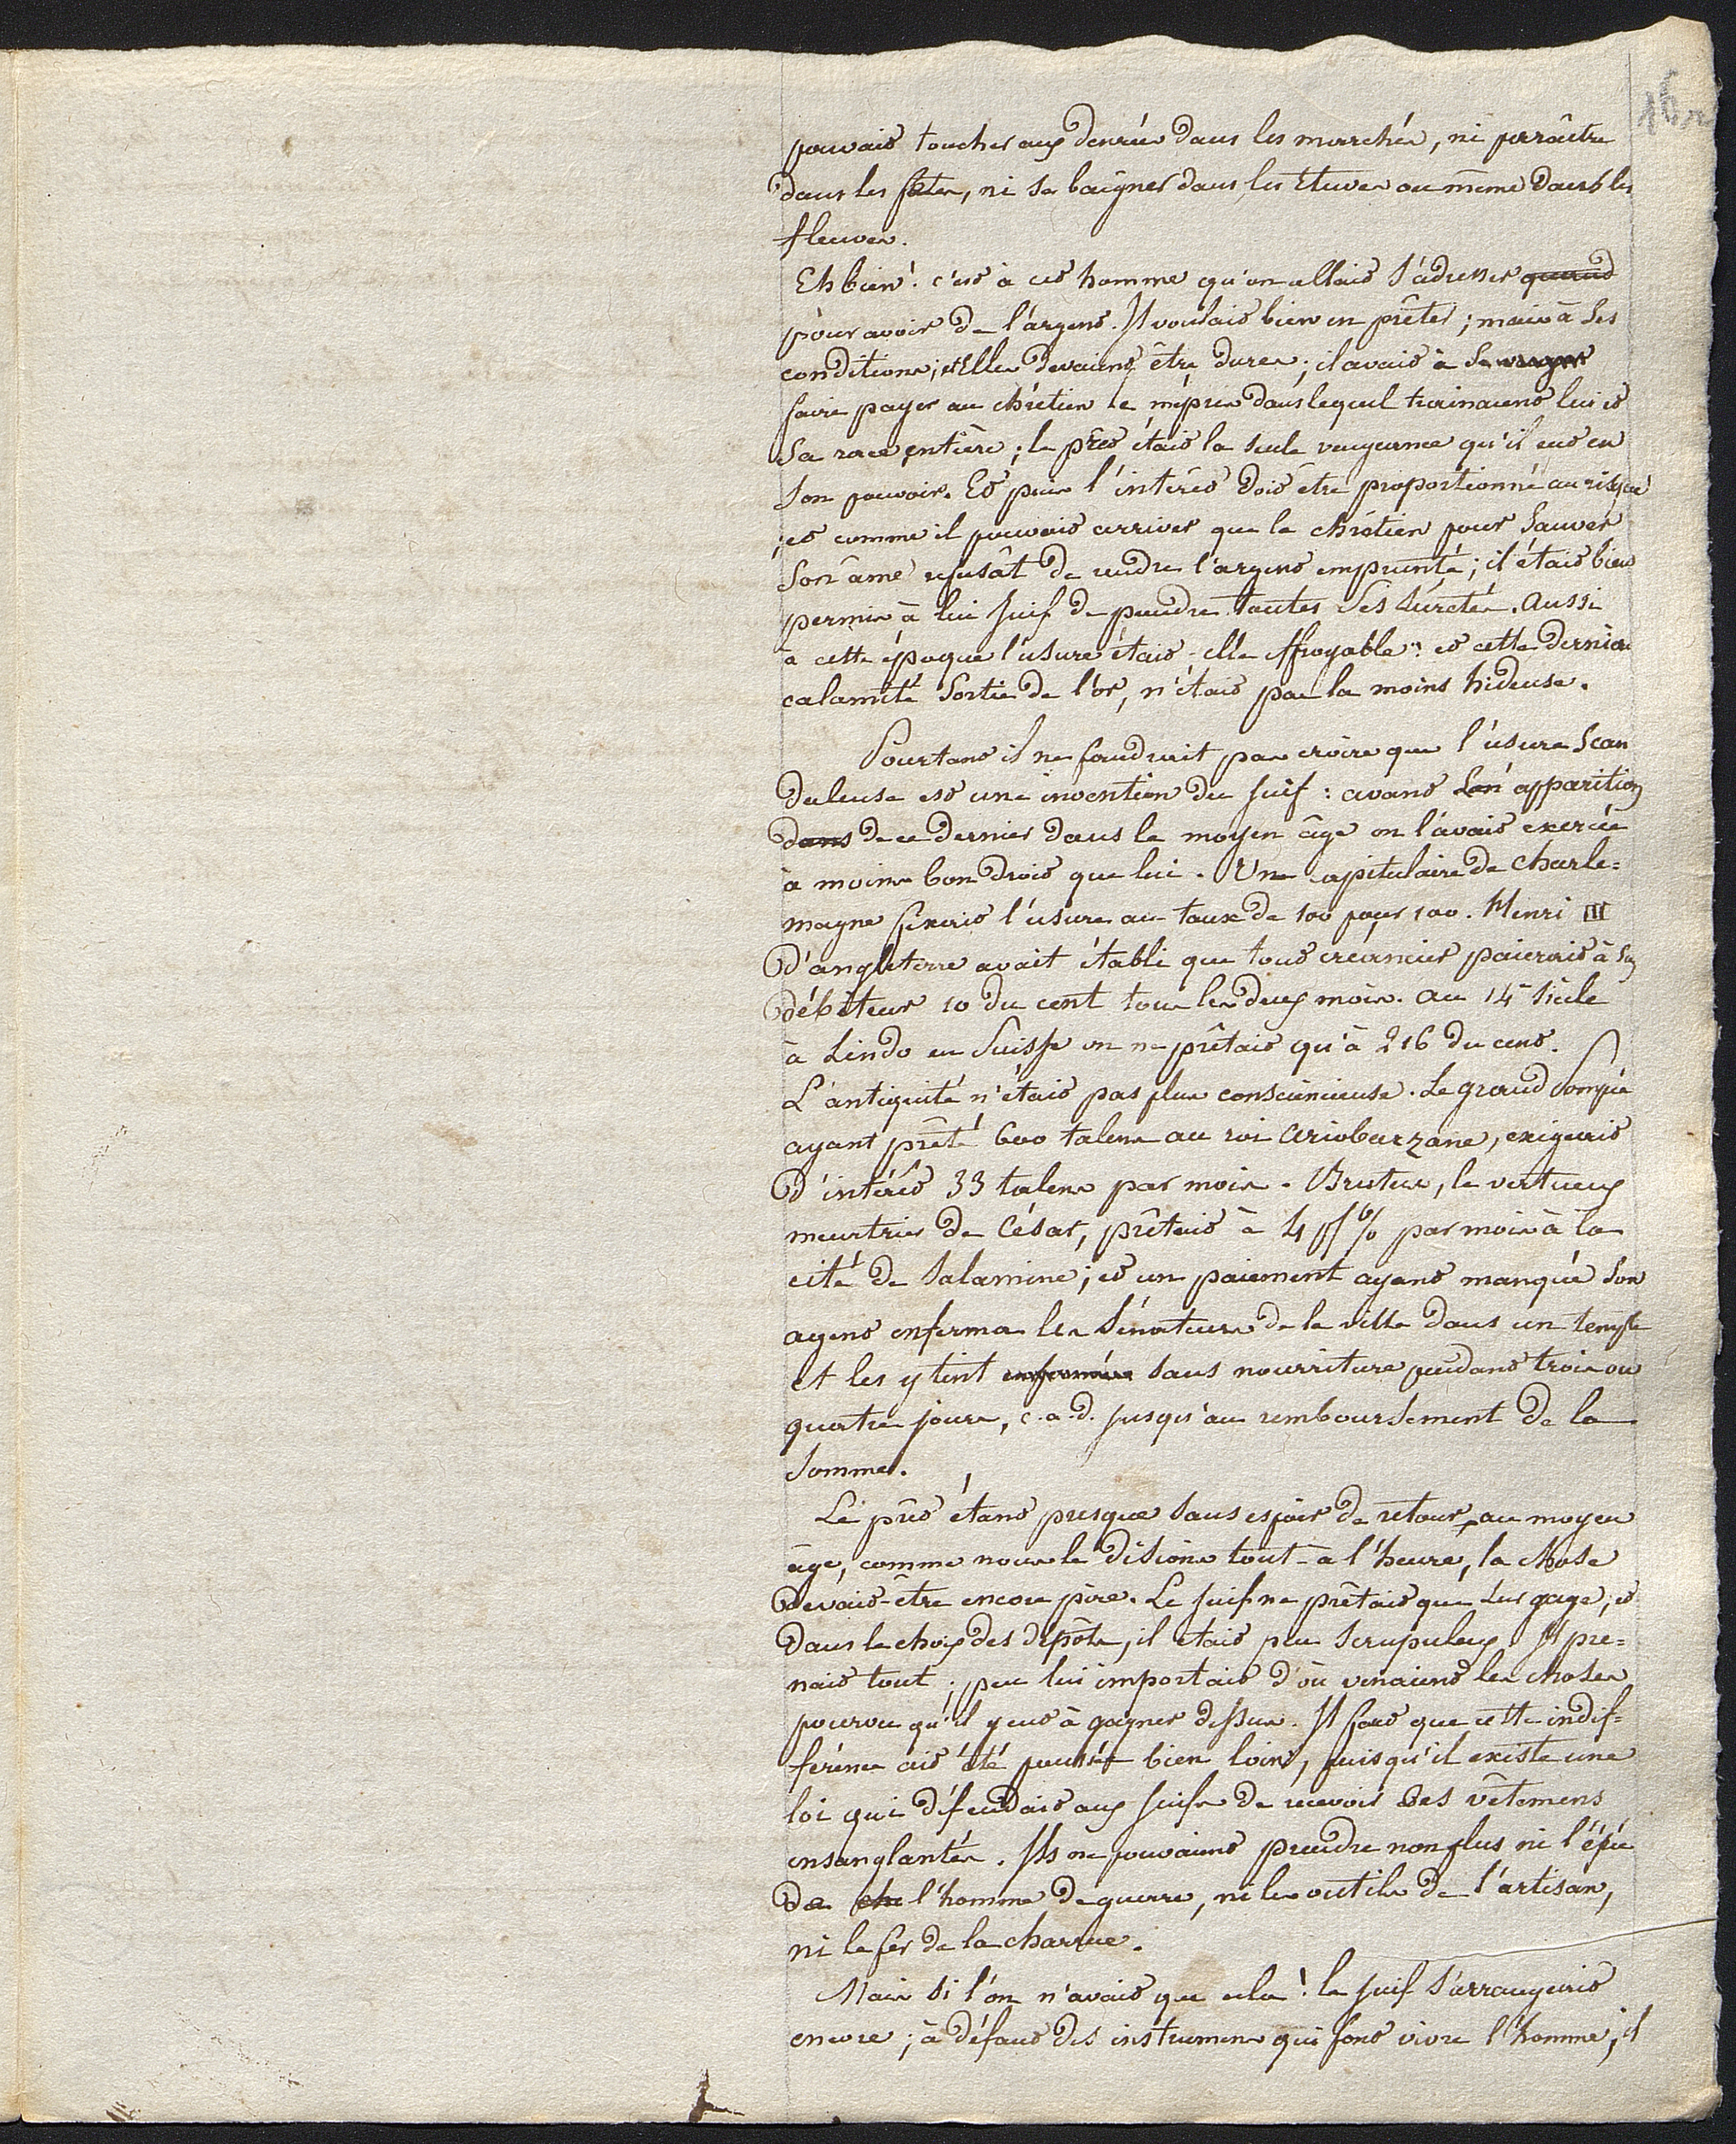 16r
pouvait toucher aux denrées dans les marchés, ni parraître
dans les fêtes, ni se baigner dans les Etuves ou même dans les
fleuves.
Eh bien! c'est à cet homme qu'on allait s'adresser quand
pour avoir de l'argent. Il voulait bien en prêter; mais à ses
conditions; et Elles devaient être dures; il avait à se venger
faire payer au chrétien le mépris dans lequel trainaient lui et
sa race entière; le prêt était la seule vengeance qu'il eut en
son pouvoir. Et puis l'intérêt doit être proportionné au risque
; et comme il pouvait arriver que le chrétien pour sauver
son âme refusât de rendre l'argent emprunté; il était bien
permis à lui Juif de prendre toutes ses suretés. Aussi
à cette époque l'usure était-elle effroyable: et cette dernière
calamité sortie de l'or, n'était pas la moins hideuse.
Pourtant il ne faudrait pas croire que l'usure scan
daleuse est une invention du Juif: avant son apparition
dans de ce dernier dans le moyen âge on l'avait exercée
à moins bon droit que lui. Une capitulaire de Charle=
magne fixerait l'usure au taux de 100 pour 100. Henri III
d'angleterre avait établi que tout créancier paierait à son
débiteur 10 du cent tous les deux mois. Au 14e siècle
à Lindo en Suisse on ne prêtait qu'à 216 du cent.
L'antiquité n'était pas plus consciencieuse. Le grand Pompée
ayant prêté 600 talens au roi Ariobarzane, exigeait
d'intérêt 33 talens par mois. Brutus, le vertueux
meurtrier de César, prêtait à 4 pf % par mois à la
cité de Salamine; et un paiement ayant manqué son
agent enferma les Sénateurs de la ville dans un temple
et les y tint enfermés sans nourriture pendant trois ou
quatre jours, c.a.d. jusqu'au remboursement de la
somme.
Le prêt étant presque sans espoir de retour, au moyen
âge, comme nous le disions tout-à l'heure, la chose
devait-être encore pire. Le Juif ne prêtait que sur gage; et
dans le choix des dépôts, il était peu scrupuleux. Il pre=
nait tout; peu lui importait d'où venaient les choses
pourvu qu'il y eut à gagner dessus. Il faut que cette indif=
férence ait été poussée bien loin, puisqu'il existe une
loi qui défendait aux Juifs de recevoir des vêtemens
ensanglantés. Ils ne pouvaient prendre non plus ni l'épée
de che l'homme de guerre, ni les outils de l'artisan,
ni le fer de la charrue.
Mais si l'on n'avait que cela! le Juif s'arrangerait
encore; à défaut des instrumens qui font vivre l'homme, il